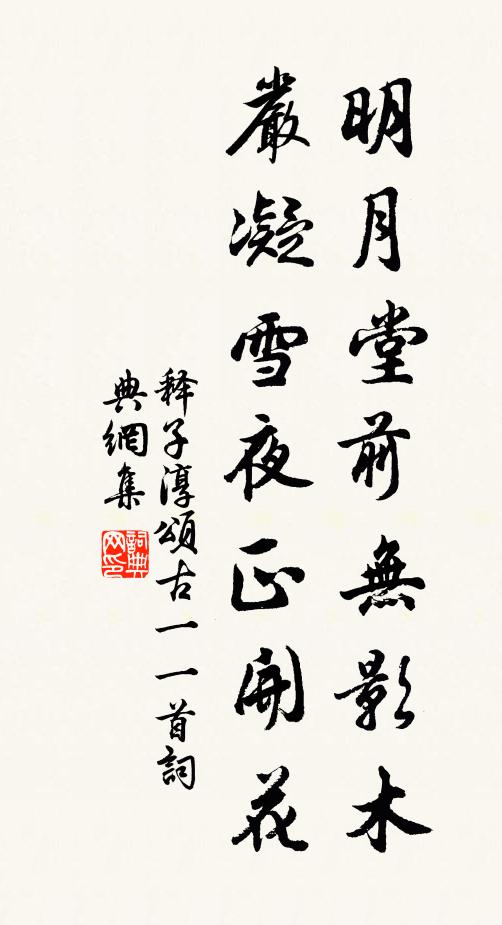 明月堂前無影木
嚴凝雪夜正開花
釋子淳頌古一一首詞
典網集
詞典
网印